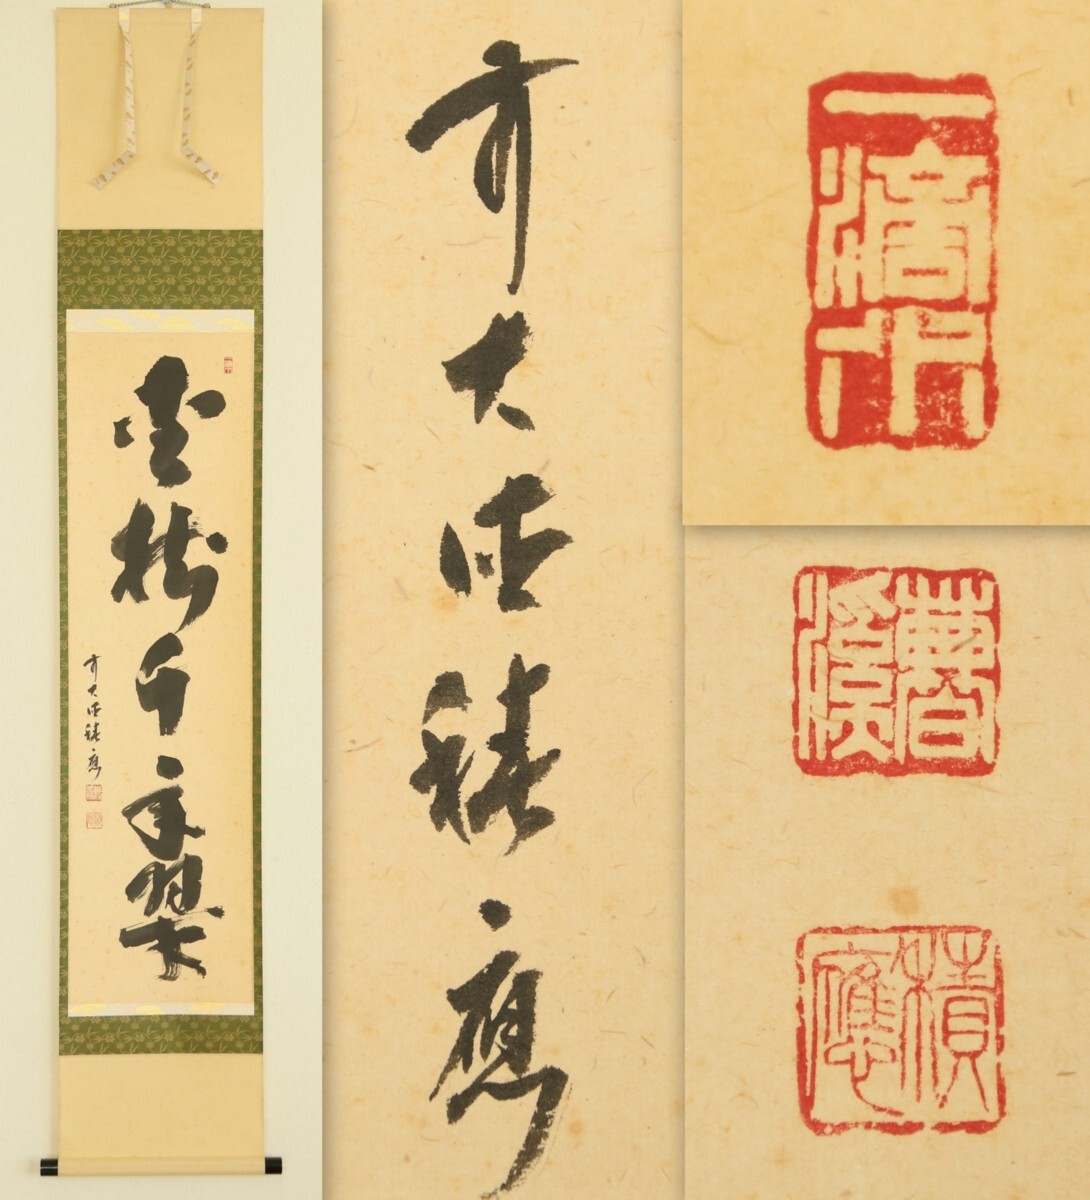 松樹千年翠
前大徳積應
前大徳積應
一滴水
積應